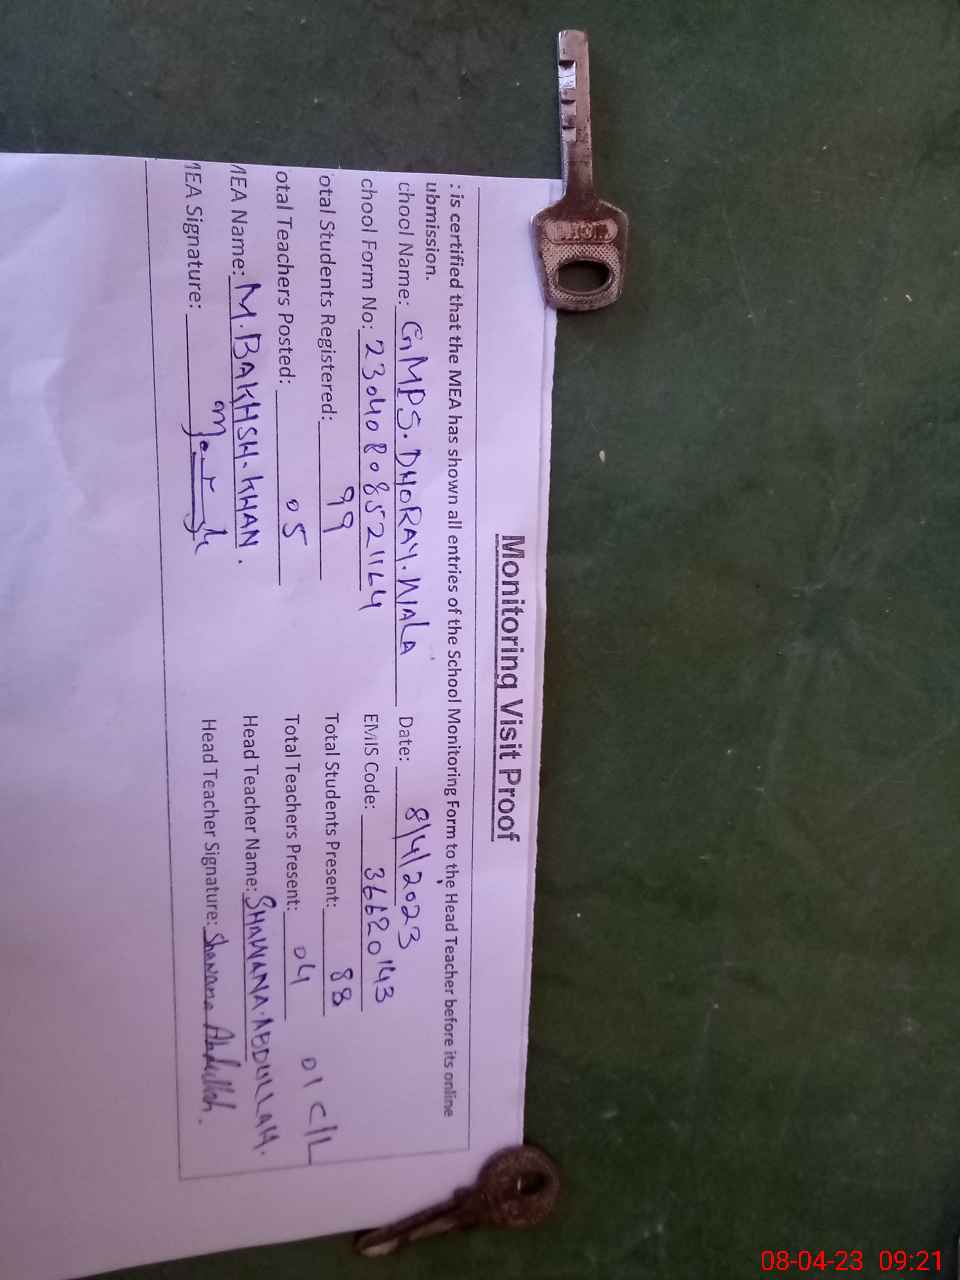 Monitoring Visit Proof
: is certified that the MEA has shown all entries of the School Monitoring Form to the Head Teacher before its online
ubmission.
chool Name: GMPS. DHORAY. WALA Date: 8/4/2023
chool Form No: 230408085211L4 EMIS Code: 36620143
otal Students Registered: 99 Total Students Present: 88
otal Teachers Posted: 05 Total Teachers Present: 04 01 C/L
MEA Name: M. BAKHSH. KHAN. Head Teacher Name: SHAWANA. ABDULLAH.
MEA Signature: Head Teacher Signature: Shawana Abdullah.
08-04-23 09:21